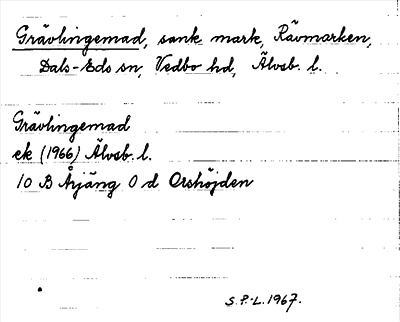 Grävlingemad, sank mark, Rävmarken,
Dals-Eds sn, Vedbo hd, Älvsb. l.
Grävlingemad
ek (1966) Älvsb. l.
10 B Årjäng 0 d Orshöjden
S.P.L. 1967.